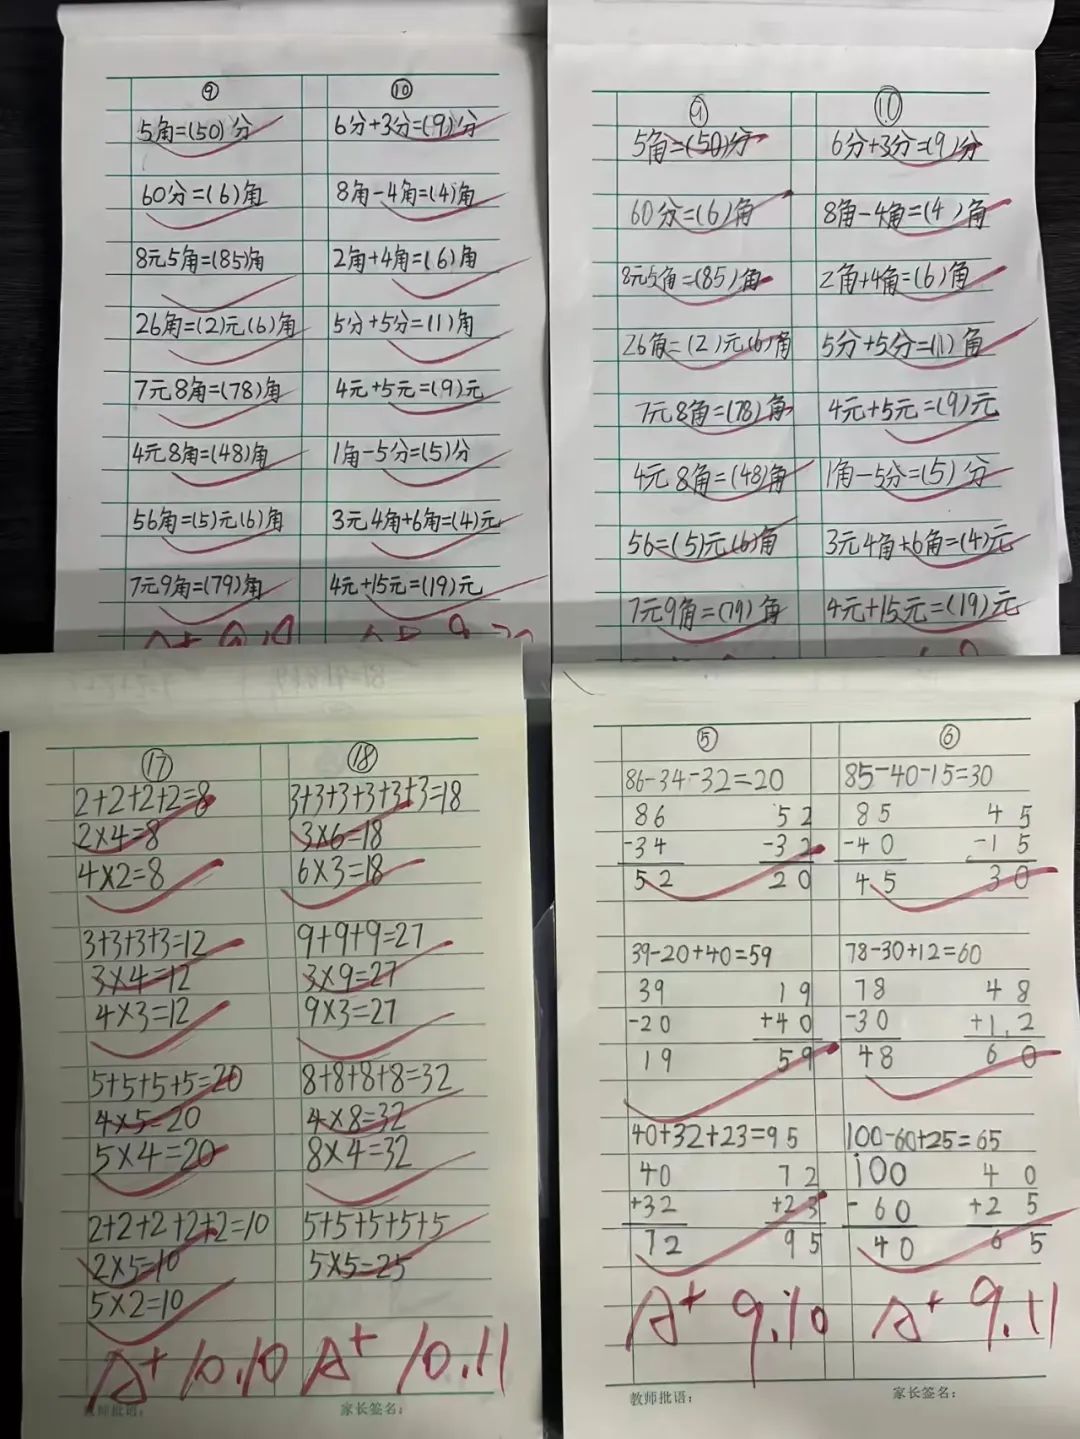 ⑨ ⑩
5角=(50)分 6分+3分=(9)分
60分=(6)角 8角-4角=(4)角
8元5角=(85)角 2角+4角=(6)角
26角=(2)元(6)角 5分+5分=(1)角
7元8角=(78)角 4元+5元=(9)元
4元8角=(48)角 1角-5分=(5)分
56角=(5)元(6)角 3元4角+6角=(4)元
7元9角=(79)角 4元+15元=(19)元
⑨ ⑩
5角=(50)分 6分+3分=(9)分
60分=(6)角 8角-4角=(4)角
8元5角=(85)角 2角+4角=(6)角
26角=(2)元(6)角 5分+5分=(1)角
7元8角=(78)角 4元+5元=(9)元
4元8角=(48)角 1角-5分=(5)分
56=(5)元(6)角 3元4角+6角=(4)元
7元9角=(79)角 4元+15元=(19)元
⑰ ⑱
2+2+2+2=8 3+3+3+3+3+3=18
2×4=8 3×6=18
4×2=8 6×3=18
3+3+3+3=12 9+9+9=27
3×4=12 3×9=27
4×3=12 9×3=27
5+5+5+5=20 8+8+8+8=32
4×5=20 4×8=32
5×4=20 8×4=32
2+2+2+2+2=10 5+5+5+5+5
2×5=10 5×5=25
5×2=10
A+ 10.10 A+ 10.11
教师批语: 家长签名:
⑤ ⑥
86-34-32=20 85-40-15=30
86 52 85 45
-34 -32 -40 -15
52 20 45 30
39-20+40=59 78-30+12=60
39 19 78 48
-20 +40 -30 +12
19 59 48 60
40+32+23=95 100-60+25=65
40 72 100 40
+32 +23 -60 +25
72 95 40 65
A+ 9.10 A+ 9.11
教师批语: 家长签名: